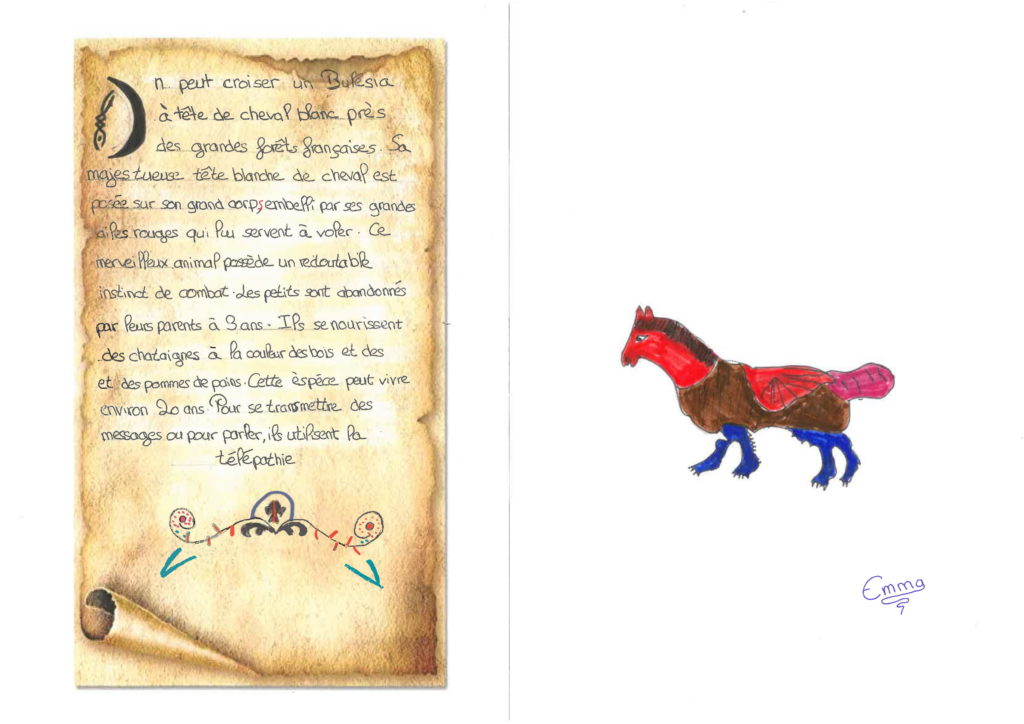 On peut croiser un Bulesia
à tête de cheval blanc près
des grandes forêts françaises. Sa
majestueuse tête blanche de cheval est
posée sur son grand corps, embelli par ses grandes
ailes rouges qui lui servent à voler. Ce
merveilleux animal possède un redoutable
instinct de combat. Les petits sont abandonnés
par leurs parents à 3 ans. Ils se nourissent
des chataignes à la couleur des bois et des
et des pommes de pains. Cette èspéce peut vivre
environ 20 ans. Pour se transmettre des
messages ou pour parler, ils utilisent la
télépathie
Emma